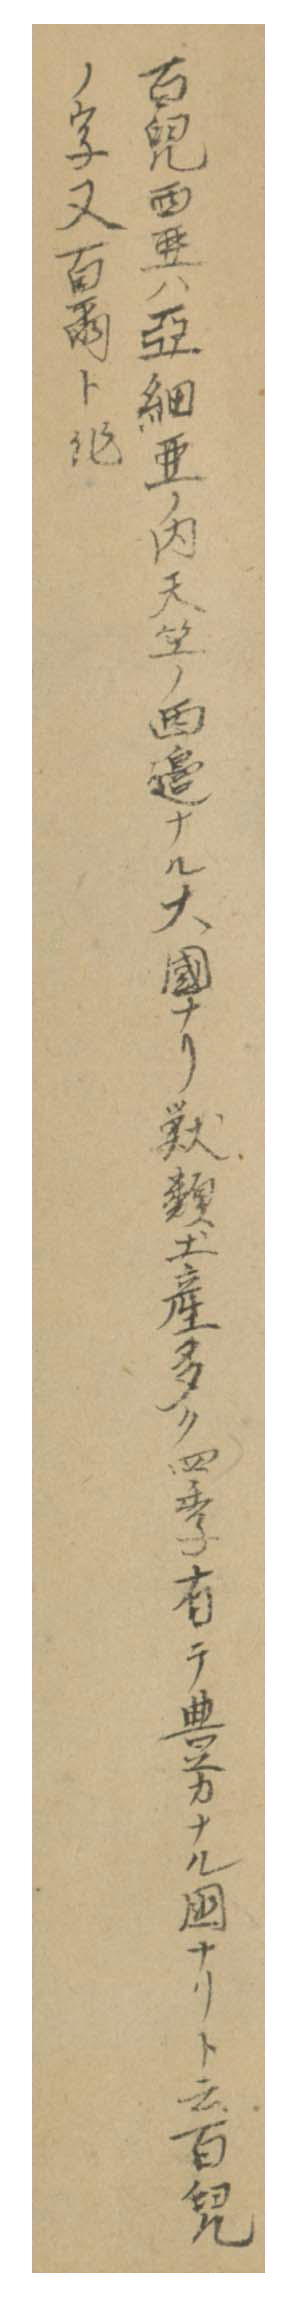 百兒西亜ハ亞細亜ノ内天竺ノ西邉ナル大國ナリ獣類土産多ク四季有テ豊カナル國ナリト云百兒
ノ字又百爾ト作